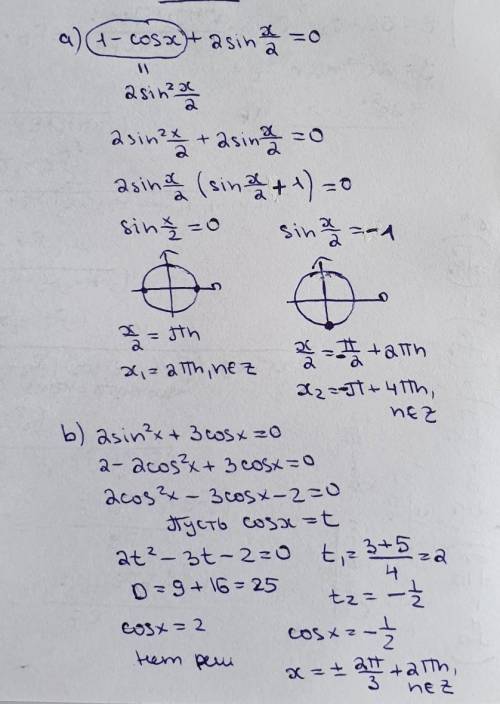 a) 1 - cosx + 2sin x/2 = 0
=
2sin² x/2
2sin² x/2 + 2sin x/2 = 0
2sin x/2 (sin x/2 + 1) = 0
sin x/2 = 0 sin x/2 = -1
x/2 = πn x/2 = -π/2 + 2πn
x₁ = 2πn, n∈Z x₂ = -π + 4πn,
n∈Z
b) 2sin²x + 3cosx = 0
2 - 2cos²x + 3cosx = 0
2cos²x - 3cosx - 2 = 0
Пусть cosx = t
2t² - 3t - 2 = 0 t₁ = (3+5)/4 = 2
D = 9 + 16 = 25 t₂ = -1/2
cosx = 2 cosx = -1/2
Нет реш x = ± 2π/3 + 2πn,
n∈Z